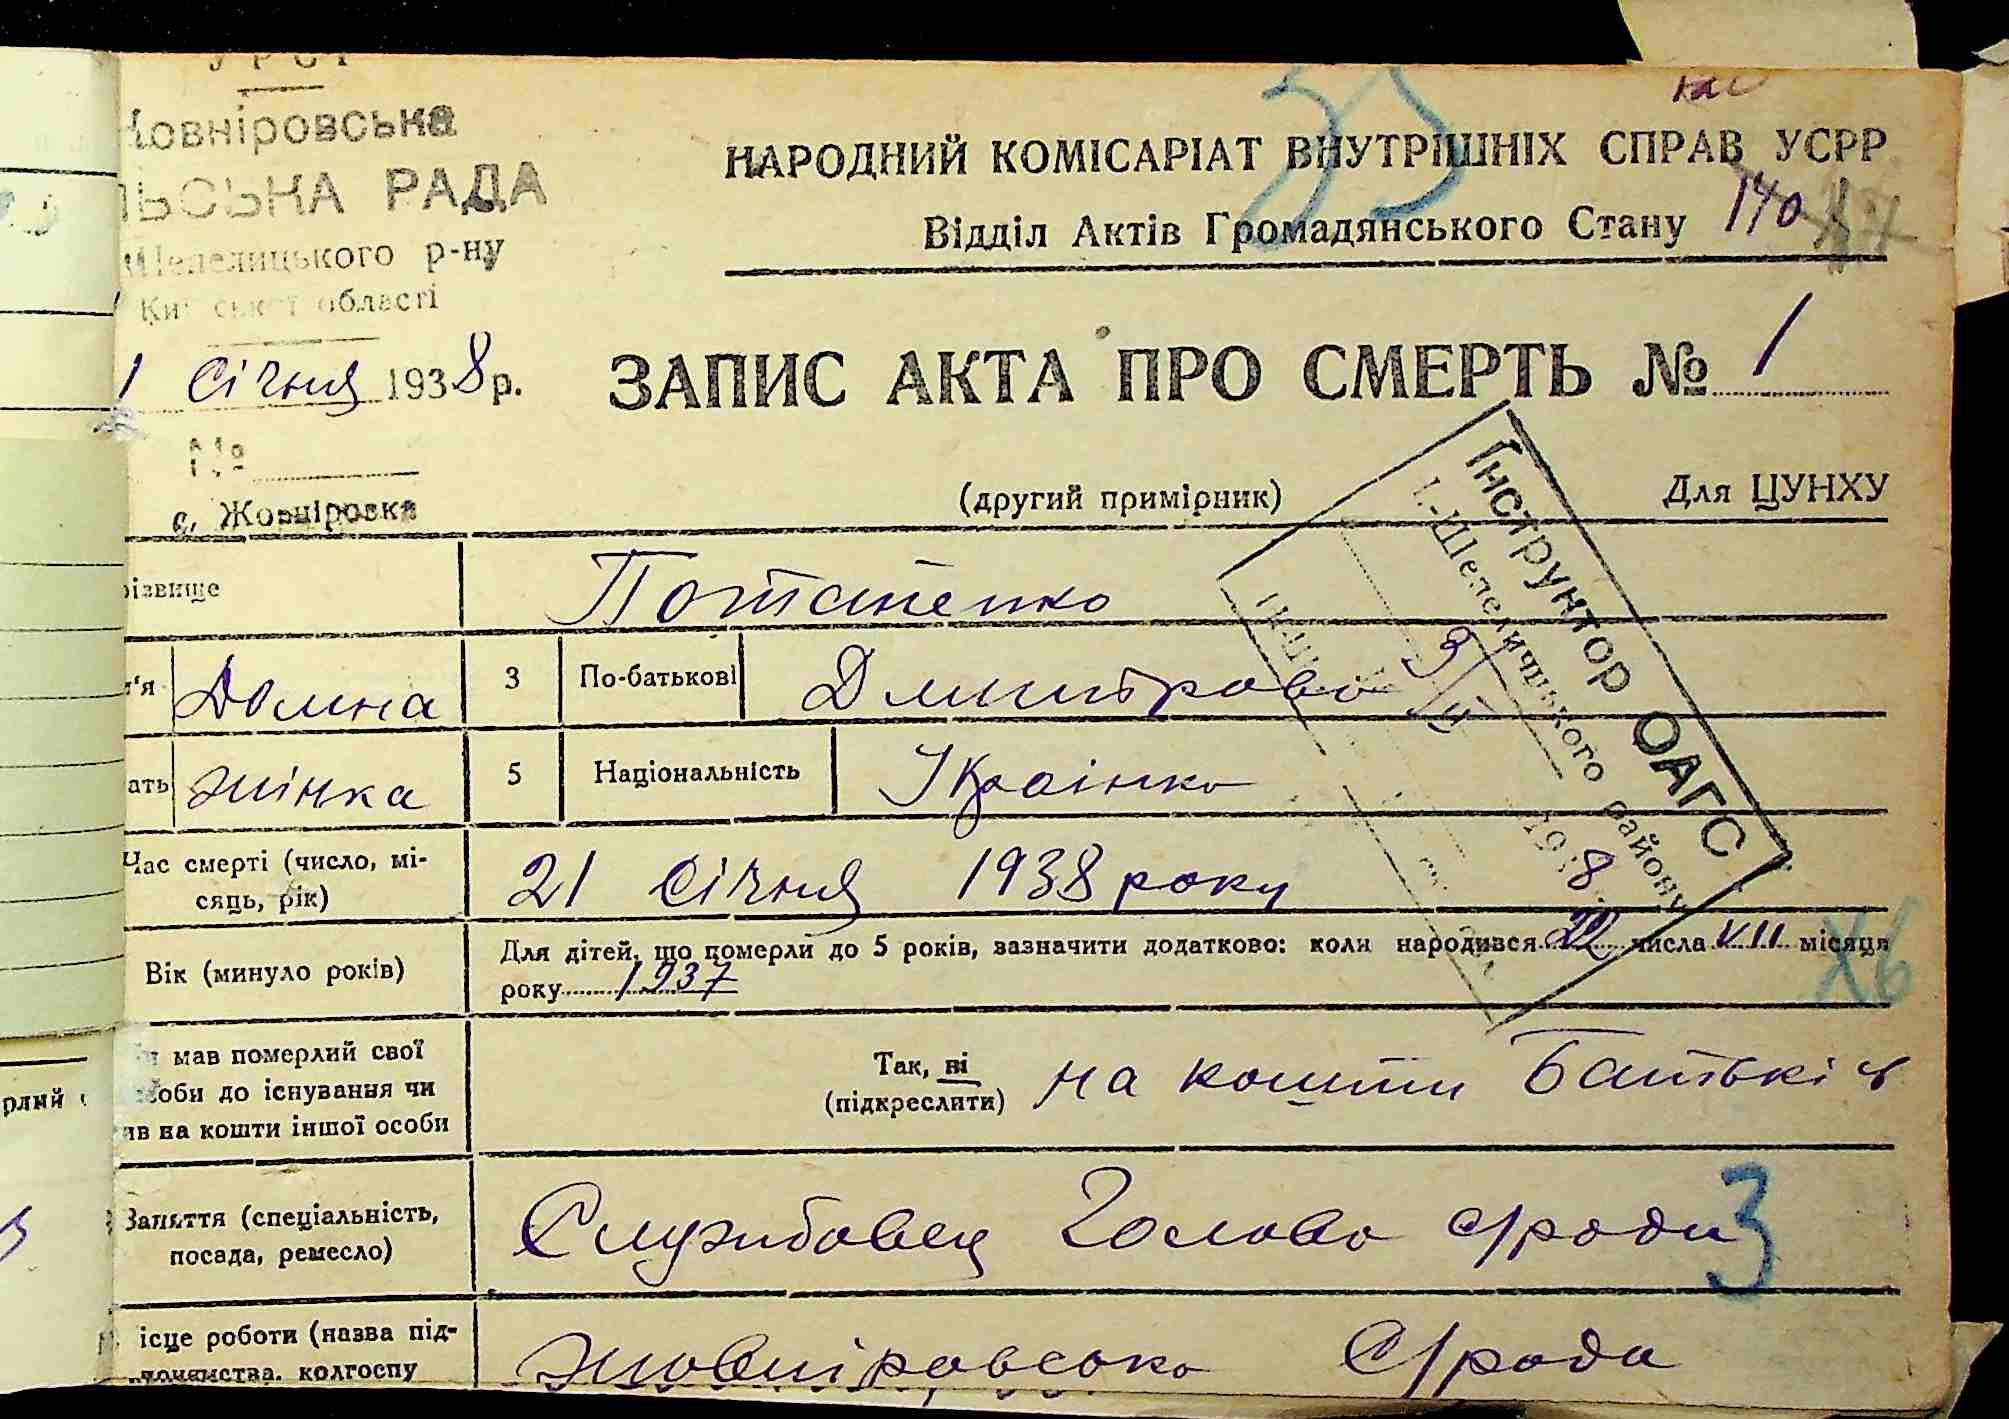 УРСР
Жовніровська
ЛЬСЬКА РАДА
Шепелицького р-ну
Київської області
1 Січня 1938 р.
№
с. Жовніровка
НАРОДНИЙ КОМІСАРІАТ ВНУТРІШНІХ СПРАВ УСРР
Відділ Актів Громадянського Стану 140
33
ЗАПИС АКТА ПРО СМЕРТЬ № 1
(другий примірник) Для ЦУНХУ
Інструктор ОАГС
І.-Шепелицького району
1938
різвище Потапенко
м'я Домна 3 По-батькові Дмитрова
ать жінка 5 Національність Українка
Час смерті (число, мі-
сяць, рік) 21 Січня 1938 року
Вік (минуло років) Для дітей, що померли до 5 років, зазначити додатково: коли народився 22 числа VII місяця
року 1937
Х6
мав померлий свої
соби до існування чи
ив на кошти іншої особи
Так, ні
(підкреслити) на кошти Батьків
Заняття (спеціальність,
посада, ремесло) Службовец Голова с/ради
3
ісце роботи (назва під-
приємства, колгоспу Жовніровська С/рада
рлий